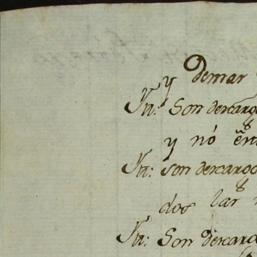 y demar
Ytt: Son descarg
y nó en
Ytt: Son descargo
dos lar
Ytt: Son descarg